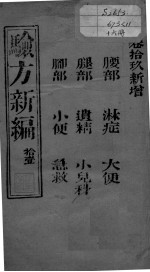 卷拾玖新增
腰部　淋症　大便
腿部　遺精　小兒科
腳部　小便　急救
驗方新編
拾壹